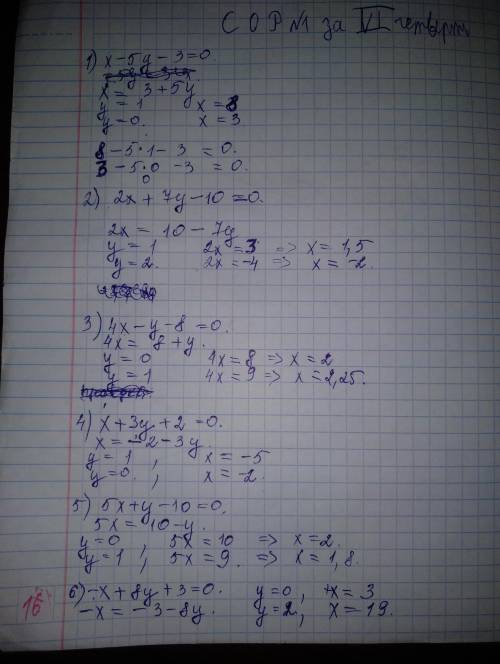 СОР №1 за VI четверть
1) x - 5y - 3 = 0.
x = 3 + 5y
y = 1 x = 8
y = 0. x = 3
8 - 5 · 1 - 3 = 0.
3 - 5 · 0 - 3 = 0.
0
2) 2x + 7y - 10 = 0.
2x = 10 - 7y
y = 1 2x = 3 => x = 1,5
y = 2. 2x = -4 => x = -2.
3) 4x - y - 8 = 0.
4x = 8 + y.
y = 0 4x = 8 => x = 2
y = 1 4x = 9 => x = 2,25.
4) x + 3y + 2 = 0.
x = -2 - 3y.
y = 1 , x = -5
y = 0. , x = -2.
5) 5x + y - 10 = 0.
5x = 10 - y.
y = 0 , 5x = 10 => x = 2.
y = 1 , 5x = 9. => x = 1,8.
6) -x + 8y + 3 = 0. y = 0, +x = 3
-x = -3 - 8y. y = 2, x = 19.
16